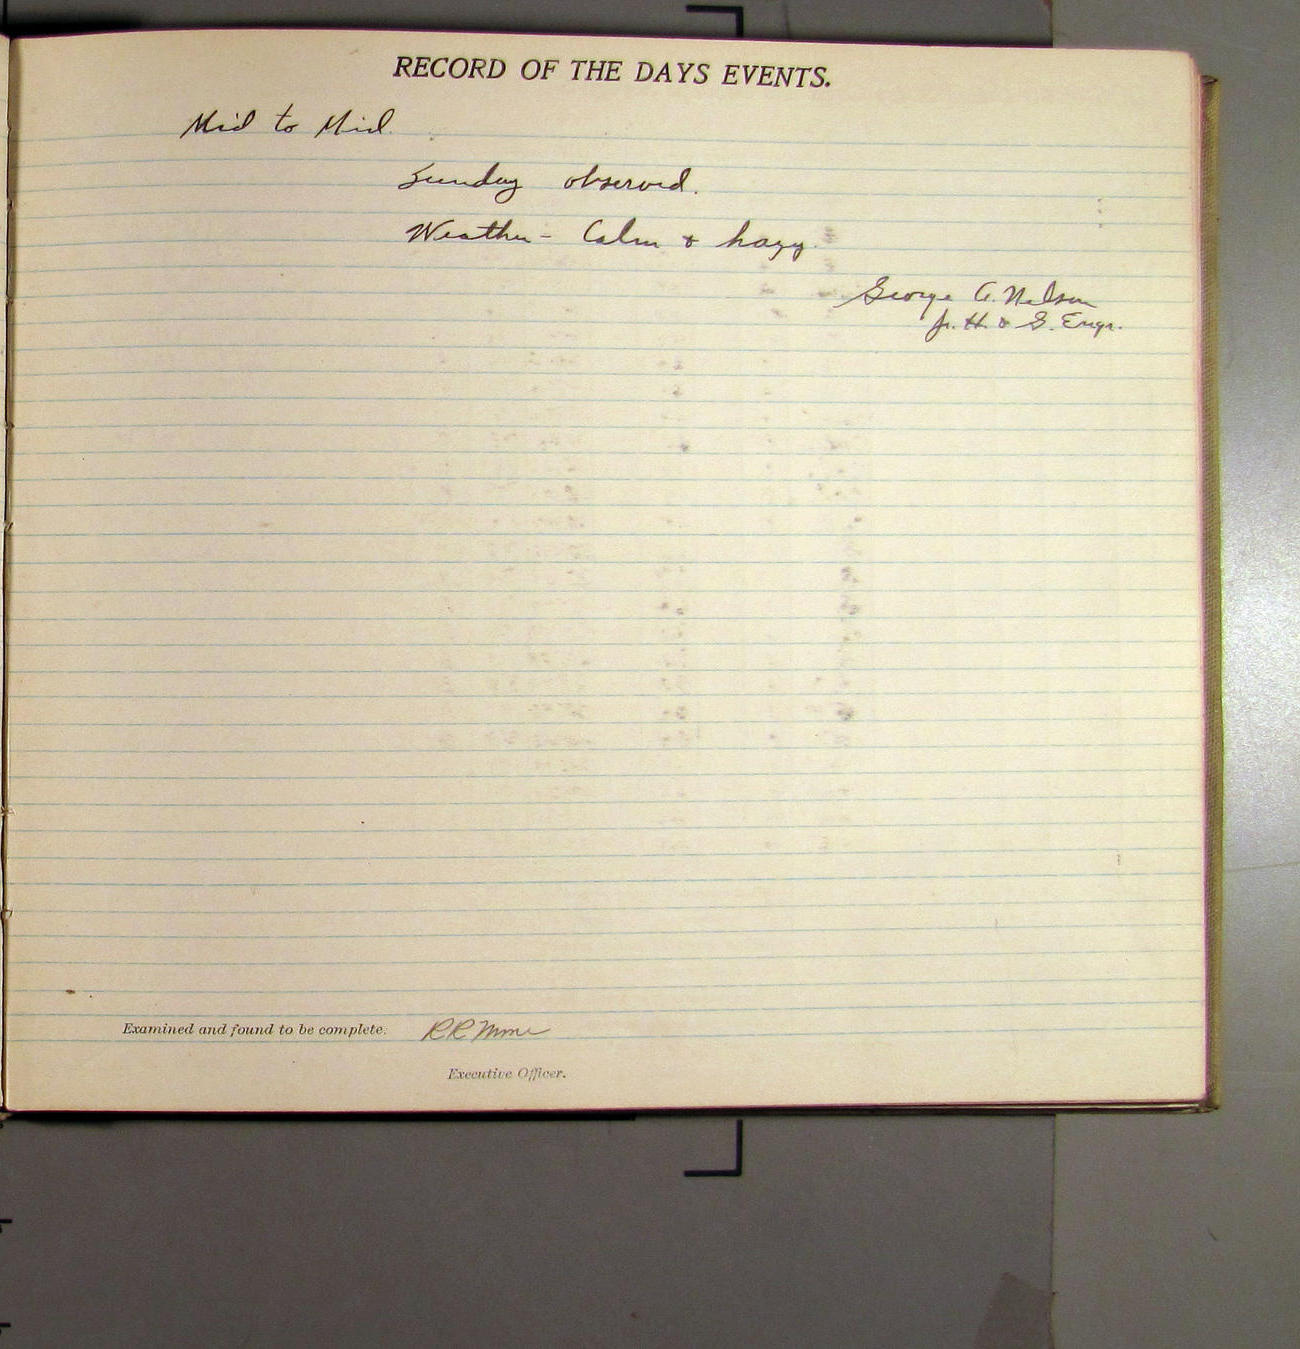 RECORD OF THE DAYS EVENTS.
Mid to Mid.
Sunday observed.
Weather - Calm & hazy.
George A. Nelson
Jr. H. & G. Engr.
Examined and found to be complete. R R Moore
Executive Officer.